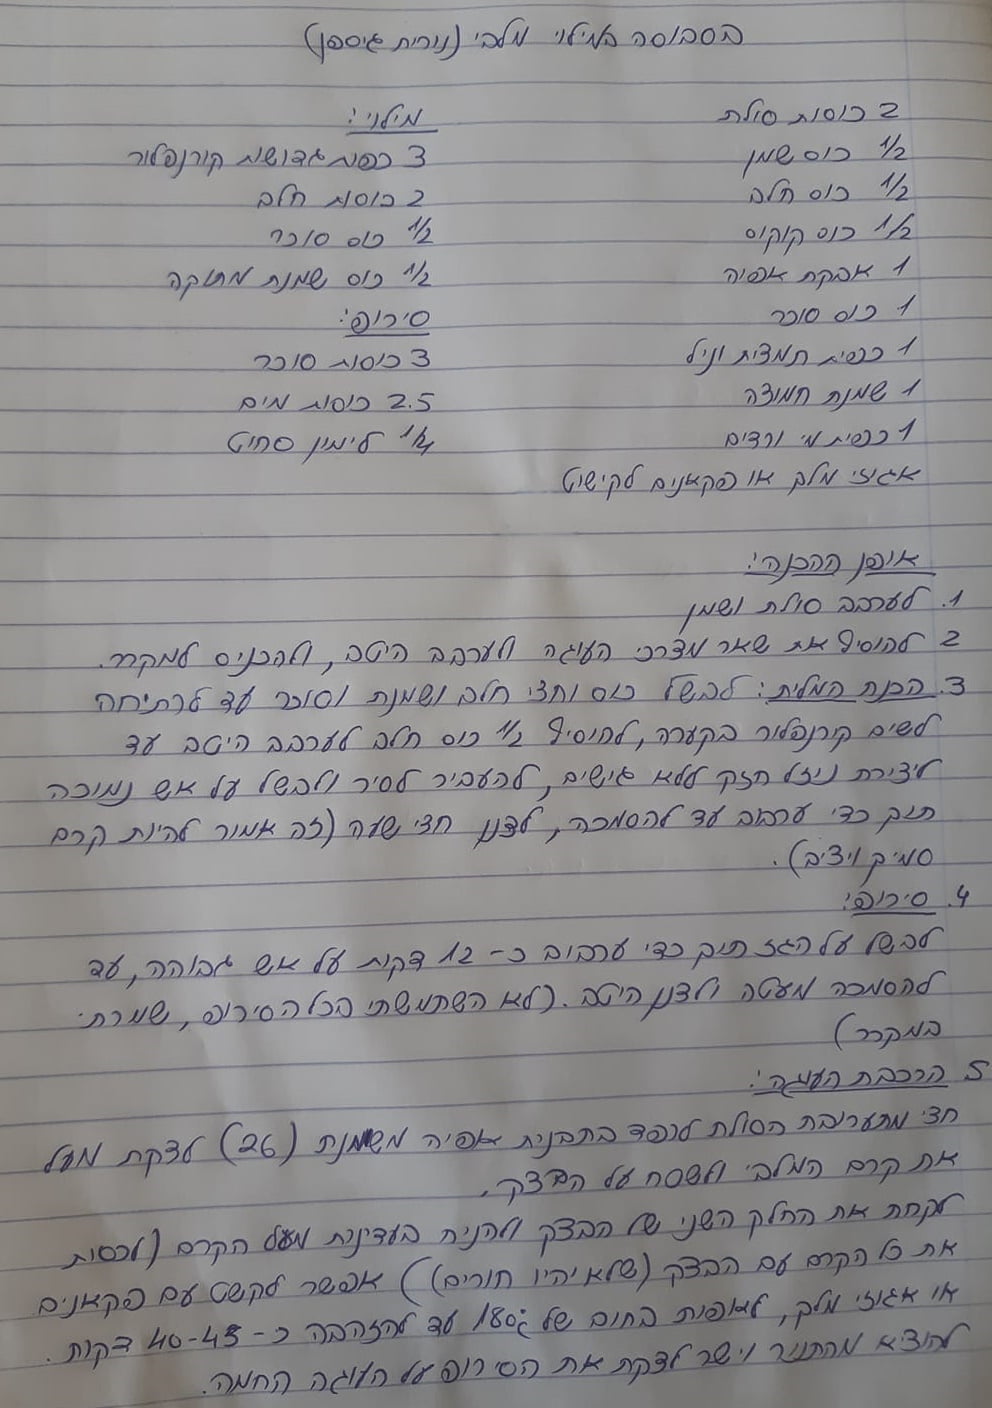 בסבוסה במילוי מלבי (נורית גיספן)
2 כוסות סולת
1/2 כוס שמן
1/2 כוס חלב
1/2 כוס קוקוס
1 אבקת אפיה
1 כוס סוכר
1 כפית תמצית וניל
1 שמנת חמוצה
1 כפית מי ורדים
אגוזי מלך או פקאנים לקישוט
מילוי:
3 כפות גדושות קורנפלור
2 כוסות חלב
1/2 כוס סוכר
1/2 כוס שמנת מתוקה
סירופ:
3 כוסות סוכר
2.5 כוסות מים
1/4 לימון סחוט
אופן ההכנה:
1. לערבב סולת ושמן
2 להוסיף את שאר מצרכי העוגה ולערבב היטב, ולהכניס למקרר.
3. הכנת המלית: לבשל כוס וחצי חלב ושמנת וסוכר עד לרתיחה
לשים קורנפלור בקערה, להוסיף 1/2 כוס חלב לערבב היטב עד
ליצירת נוזל חזק ללא גושים, להעביר לסיר ולבשל על אש נמוכה
תוך כדי ערבוב עד להסמכה, לצנן חצי שעה (זה אמור להיות קרם
סמיך ויציב).
4. סירופ:
לבשל על הגז תוך כדי ערבוב כ- 12 דקות על אש גבוהה, עד
להסמכה מעטה ולצנן היטב. (לא השתמשתי בכל הסירופ, שמרתי
במקרר)
5 הרכבת העוגה:
חצי מתערובת הסולת לרפד בתבנית אפיה משומנת (26) לצקת מעל
את קרם המלבי ולשטח על הבצק.
לקחת את החלק השני של הבצק ולהניח בעדינות מעל הקרם (לכסות
את כל הקרם עם הבצק (שלא יהיו חורים)) אפשר לקשט עם פקאנים
או אגוזי מלך, לאפות בחום של 180° עד להזהבה כ- 40-45 דקות.
להוציא מהתנור וישר לצקת את הסירופ על העוגה החמה.